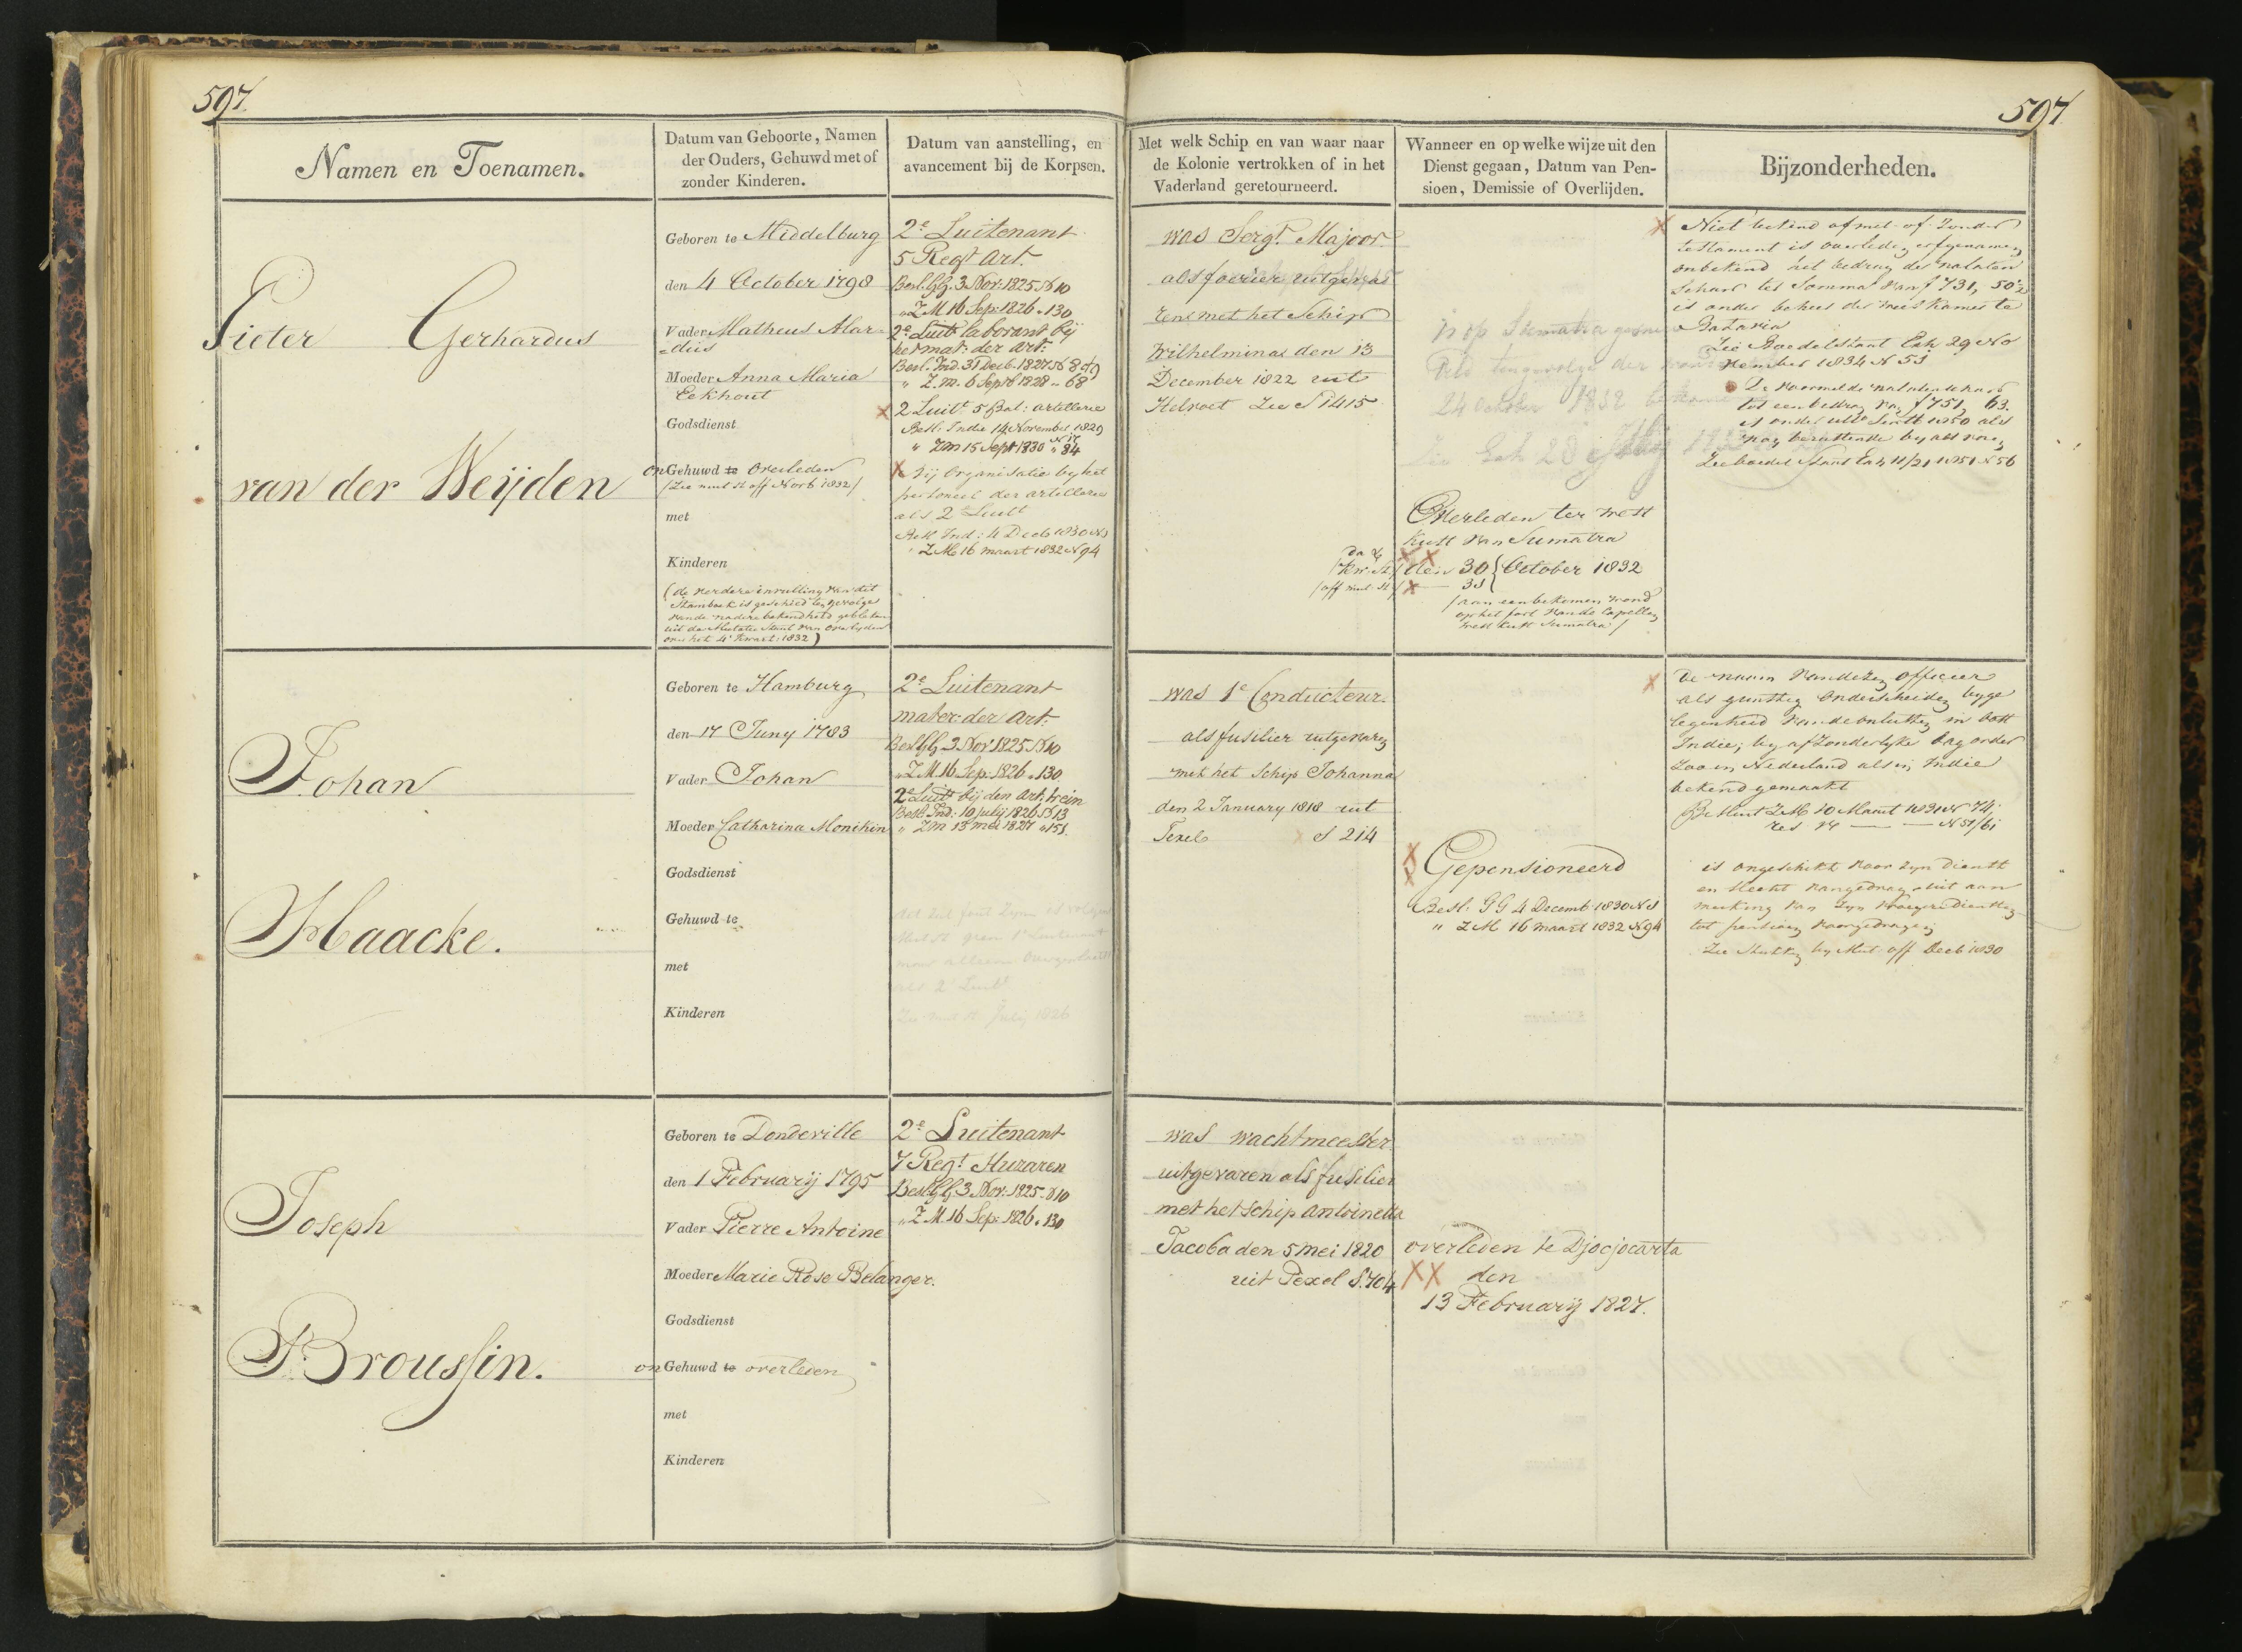 597.
597
Namen en Toenamen.
Datum van Geboorte, Namen
der Ouders, Gehuwd met of
zonder Kinderen.
Datum van aanstelling, en
avancement bij de Korpsen.
Met welk Schip en van waar naar
de Kolonie vertrokken of in het
Vaderland geretourneerd.
Wanneer en op welke wijze uit den
Dienst gegaan, Datum van Pen-
sioen, Demissie of Overlijden.
Bijzonderheden.
Pieter Gerhardus
van der Weijden
Geboren te Middelburg
den 4 October 1798
Vader Matheus Alar-
=dus
Moeder Anna Maria
Eekhout
Godsdienst
onGehuwd te overleden
(Zie mut st off Novb 1832)
met
Kinderen
(de verdere invulling van dit
Stamboek is geschied ten gevolge
van de nadere bekendheid gebleken
uit de Mutatie Staat van Overlijden
over het 4e Kwart: 1832)
2e Luitenant
5 Regt Art.
Besl. GG. 3 Nov: 1825 N 10
" Z.M 16 Sep: 1826 " 130
2e Luitt laborant bij
het mat: der Art:
Besl. Ind. 31 Decb. 1827 N 8
" Z.M. 6 Septb 1828 " 68
X 2 Luitt 5 Bat: artillerie
Besl: Indie 14 November 1829
N 17
" ZM 15 Sept 1830 " 84
X bij Organisatie by het
personeel der artillerie
als 2e Luitt
Besl Ind: 4 Decb 1830 N 1
" Z.M. 16 maart 1832 N 94
was Sergt Majoor
als foerier uitgeva
ren met het Schip
Wilhelmina den 13
December 1822 uit
Helvoet Zie S 1415
is op Sumatra
24 October 1832
Overleden ter West
Kust van Sumatra
X X
den 30 { October 1832
X 31
(aan een bekomen wond
op het fort van de Capellen
West Kust Sumatra)
X Niet bekend of met of zonder
testament is overleden erfgenamen
onbekend het bedrag der nalaten
schap ter somma van f 731, 50½
is onder beheer der weeskamer te
Batavia
Zie Boedelstaat Exh 29 No
vember 1834 N 53
De voormelde nalatenschap
tot een bedrag van f 751, 63.
is onder ulto Septb 1850 als
nog berustende bij als voren
Zie boedel Staat Exh 11/21 1851 N 56
Johan
Haacke.
Geboren te Hamburg
den 17 Juny 1783
Vader Johan
Moeder Catharina Monikin
Godsdienst
Gehuwd te
met
Kinderen
2e Luitenant
mater: der Art:
Besl GG 3 Nov 1825 N 10
" Z.M 16 Sep: 1826 " 130
2e Luitt bij den Art: trein
Beslt Ind: 10 july 1826 N 13
" ZM 13 mei 1827 " 151.
Zie mut st July 1826
was 1e Conducteur
als fusilier uitgevaren
met het Schip Johanna
den 2 January 1818 uit
Texel S 214
X
X Gepensioneerd
Besl. GG 4 Decemb 1830 N 1
" Z M 16 maart 1832 N 94
X De naam van dezen officier
als gunstig onderscheiden bij ge
legenheid van de onlusten in Oost
Indie, by afzonderlyke dag order
zoo in Nederland als in Indie
bekend gemaakt
Besluit ZM 10 Maart 1831 N 74
is ongeschikt voor zyn dienst
en slecht van gedrag, uit aan
merking van zyn vroegere diensten
tot pensioen voorgedragen
Zie Staat by Mut off Decb 1830
Joseph
Broussin.
Geboren te Dondeville
den 1 Februarij 1795
Vader Pierre Antoine
Moeder Marie Rose Belanger.
Godsdienst
onGehuwd te overleden
met
Kinderen
2e Luitenant
7 Regt Huzaren
Besl. GG 3 Nov: 1825 N 10
" Z.M. 16 Sep: 1826 " 130
was wachtmeester
uitgevaren als fusilier
met het schip antoinetta
Jacoba den 5 mei 1820
uit Texel S. 704
overleden te Djocjocarta
XX den
13 Februarij 1827.